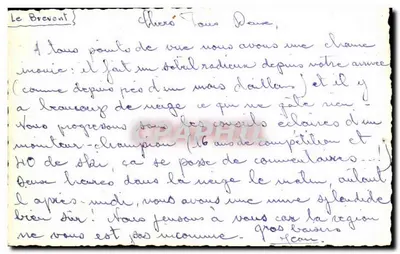 Le Brévent
Chers Tous Deux,
A tous points de vue nous avons une chance
inouïe : il fait un soleil radieux depuis notre arrivée
(comme depuis près d'un mois d'ailleurs) et il y
a beaucoup de neige ce qui ne gâte rien -
Nous progressons sous les conseils éclairés d'un
moniteur-champion (16 ans de compétition et
40 de ski, ça se passe de commentaires...)
Deux heures dans la neige le matin, autant
l'après-midi, nous avons une mine splendide
bien sûr ! Nous pensons à vous car la région
ne vous est pas inconnue. gros baisers
Jean